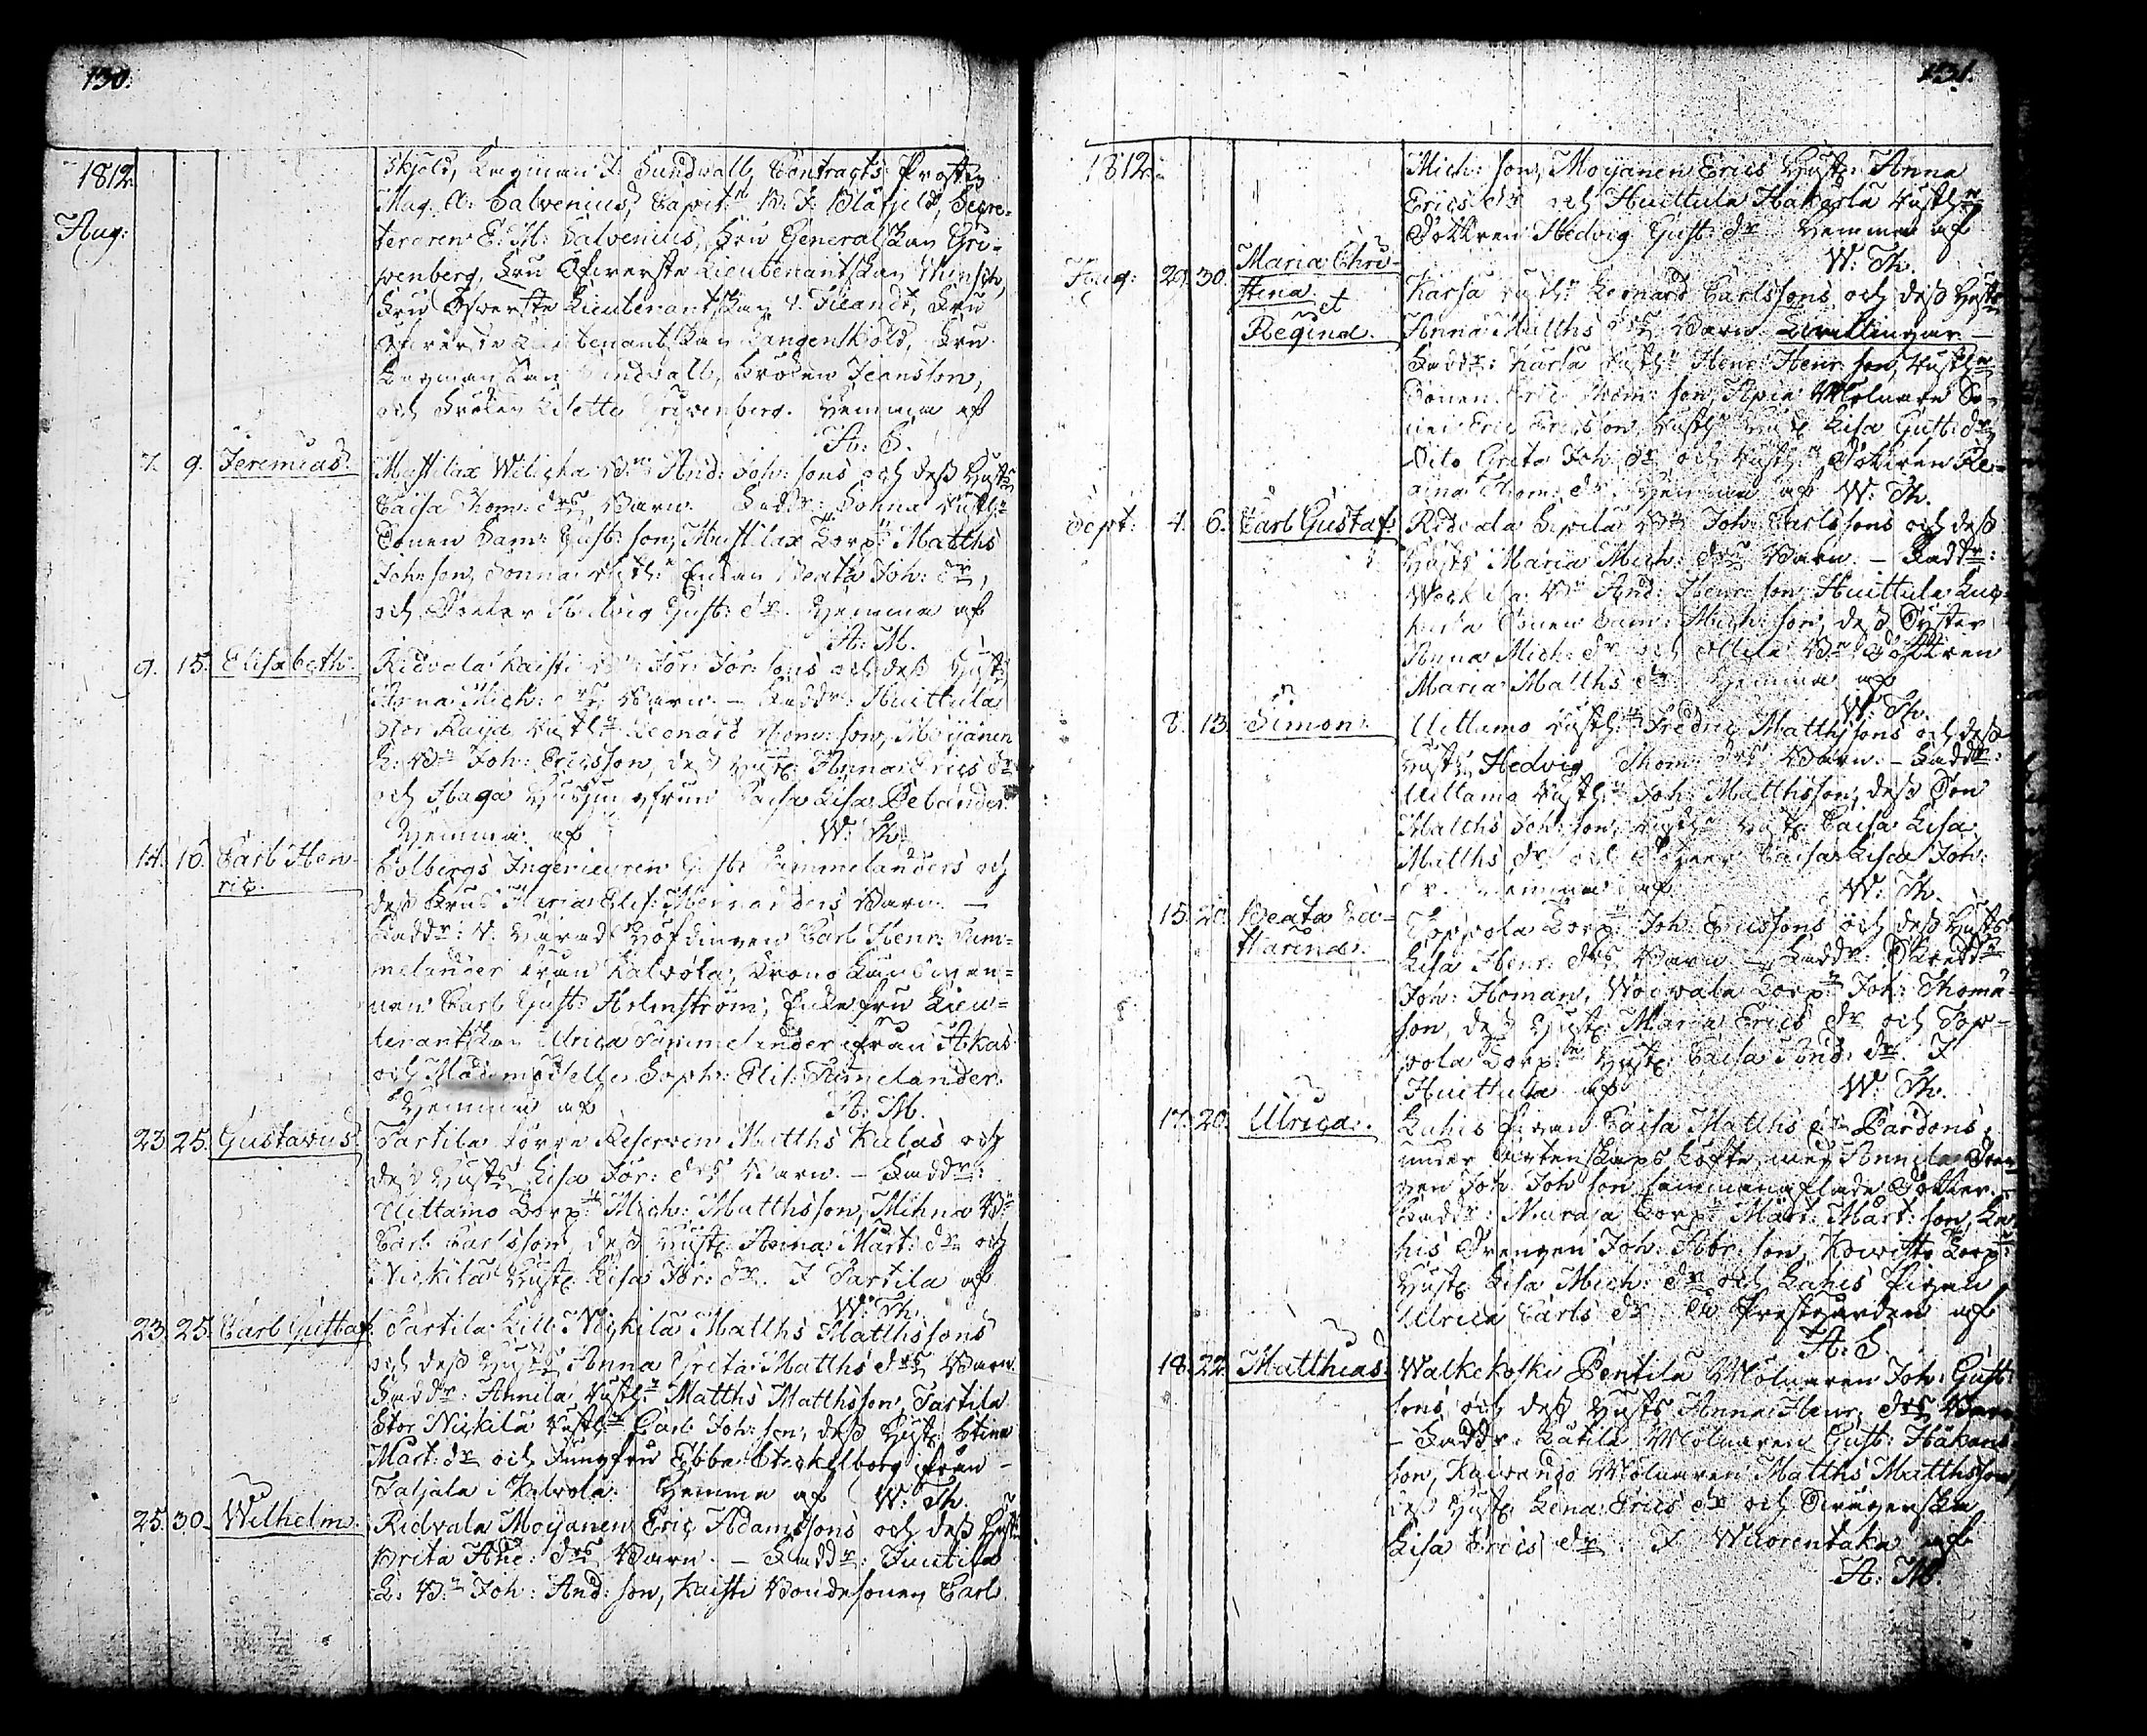 130.
1812
Aug:
skjöld, Lagman J. Sundvall, Contracts Prosten
Mag. A. Salvenius, Capit:n B. F. Blåfjeld, Secre-
teraren E. M. Salvenius, Fru Generalskan Gri-
penberg, Fru Öfverste Lieutenantskan Munsch,
Fru Öfverste Lieutenantskan v. Fieandt, Fru
Öfverste Lieutenantskan Langenskiöld, Fru
Lagmanskan Sundvall, Fröken Jeansson,
och Fröken Gripenberg. Hemma af
A: S.
7. 9. Jeremias. Mustilax Wilicka B:n And: Joh: sons och dess Hustrs
Caisa Thom: drs Barn. Faddr: Sonna Rusth:n
Sonen Sam: Gust: son, Mustilax Corp:n Matths
Joh: son, Sonna Rusth: Enkan Beata Joh: dr,
och Dotter Hedvig Gust: dr. Hemma af
A: M.
9. 15. Elisabeth. Ridvala Kaisti B:n Jör: Jör: sons och dess Hustrs
Anna Mich: drs Barn. – Faddr: Huittula
Stor Raija Rusth:n Leonard Thom: son, Moijanen
L: B:n Joh: Ericsson, dess Hustr Anna Erics dr
och Haga Husjungfrun Caisa Lisa Sebander.
Hemma af W: Th.
14. 16. Carl Hen-
ric. Solbergs Ingenieuren Gust: Tammelanders och
dess Frus Maria Elis: Barn. –
Faddr: V. Härads Höfdingen Carl Henr: Tam-
melander från Kalvola, Krono Länsman-
nen Carl Gust: Holmström, Enkefru Lieu-
tenantskan Ulrica Tammelander från Akas
och Mademoiselle Soph: Elis: Tammelander.
Hemma af A: M.
23. 25. Gustavus. Partila Torpa Reserven Matths Kulas och
dess Hustrs Lisa Jör: drs Barn. – Faddr:
Uittamo Corp:n Mich: Matthsson, Mihna B:n
Carl Carlsson, dess Hustr Anna Mart: dr och
Nickilä Hustr Lisa Jör: dr. I Partila af
W: Th.
23. 25. Carl Gustaf. Partila Lill Nickilä Matths Matthssons
och dess Hustrs Anna Greta Matths drs Barn.
Faddr: Annila Rusth:n Matths Matthsson, Partila
Stor Nickilä Rusth:n Carl Joh: son, dess Hustr Stina
Mårt: dr och Jungfru Ebba Stackelborg från
Taljala i Kalvola. Hemma af W: Th.
25. 30. Wilhelm. Ridvala Moijanen Eric Adamssons och dess Hustrs
Brita And: drs Barn. – Faddr: Juutila
L: B:n Joh: And: son, Kaisti Bondesonen Carl
131.
1812.
Mich: son, Moijanen Erics Hustr Anna
Erics dr och Huittula Hakerla Rusth:n
Dottren Hedvig Gust: dr. Hemma af
W: Th.
Aug: 29. 30. Maria Chri-
stina
et
Regina. Karsa Rusth:n Leonard Carlssons och dess Hustrs
Anna Matths drs Barn Tvillingar –
Faddr: Karsa Rusth:n Henr: Henr: son, Rusth:n
Sonen Eric Thom: son, Apia Mölnare So-
nen Eric Ericsson, Rusth:n Hustr Lisa Gust: dr,
Dito Greta Joh: dr och Rusth:n Dottren Re-
gina Thom: dr. Hemma af W: Th.
Sept: 4. 6. Carl Gustaf. Ridvala Sipilä B:n Joh: Carlssons och dess
Hustrs Maria Mich: drs Barn. – Faddr:
B:n And: Henr: son, Huittula
Sonen Sam: Mich: son, dess Syster
Anna Mich: dr och B:n Dottren
Maria Matths dr. Hemma af
W: Th.
8. 13. Simon. Uittamo Rusth:n Fredric Matthssons och dess
Hustrs Hedvig Thom: drs Barn. – Faddr:
Uittamo Rusth:n Joh: Matthsson, dess Son
Matths Joh: son, Rusth:n Hustr Caisa Lisa
Matths dr och Caisa Lisa Joh:
dr. Hemma af W: Th.
15. 20. Beata Ca-
tharina. Toppola Corp:n Joh: Ericssons och dess Hustrs
Lisa Henr: drs Barn. – Faddr: Skredd:n
Joh: Homan, Woipala Corp:n Joh: Thoma-
son, dess Hustr Maria Erics dr och Top-
pola Corp:ns Hustr Caisa And: dr. I
Huittula af W: Th.
17. 20. Ulrica. Lahis Pigan Caisa Matths dr Pardons,
under ägtenskaps löfte med Annila Dren-
gen Joh: Joh: son sammanaflade Dotter. –
Faddr: Muraja Corp:n Mårt: Mårt: son, La-
his Drengen Joh: Abr: son, Kowisto Corp:ns
Hustr Lisa Mich: dr och Lahis Pigan
Ulrica Carls dr. I Prestgården af
A: S.
18. 22. Matthias. Walkekoski Pentila Mölnaren Joh: Gust:
sons och dess Hustrs Anna Henr: drs Barn
– Faddr: Katila Mölnaren Gust: Håkans
son, Kairanco Mölnaren Matths Matthsson,
dess Hustr Lena Erics dr och
Lisa Erics dr. I Wuorentaka af
A: M.